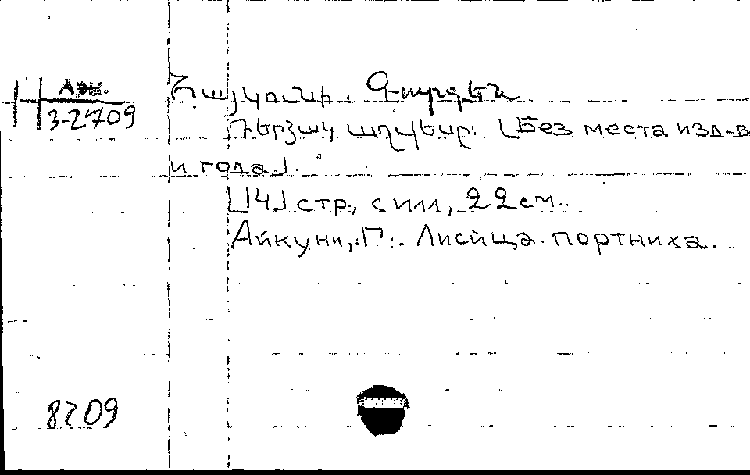 Арм.
3-2709
Հայկունի. Գարգեն
Դերձակ աղվեսը. [Без места изд-в
и года].
[14] стр, с илл, 22 см.
Айкуни, Г. Лисица портниха.
8709